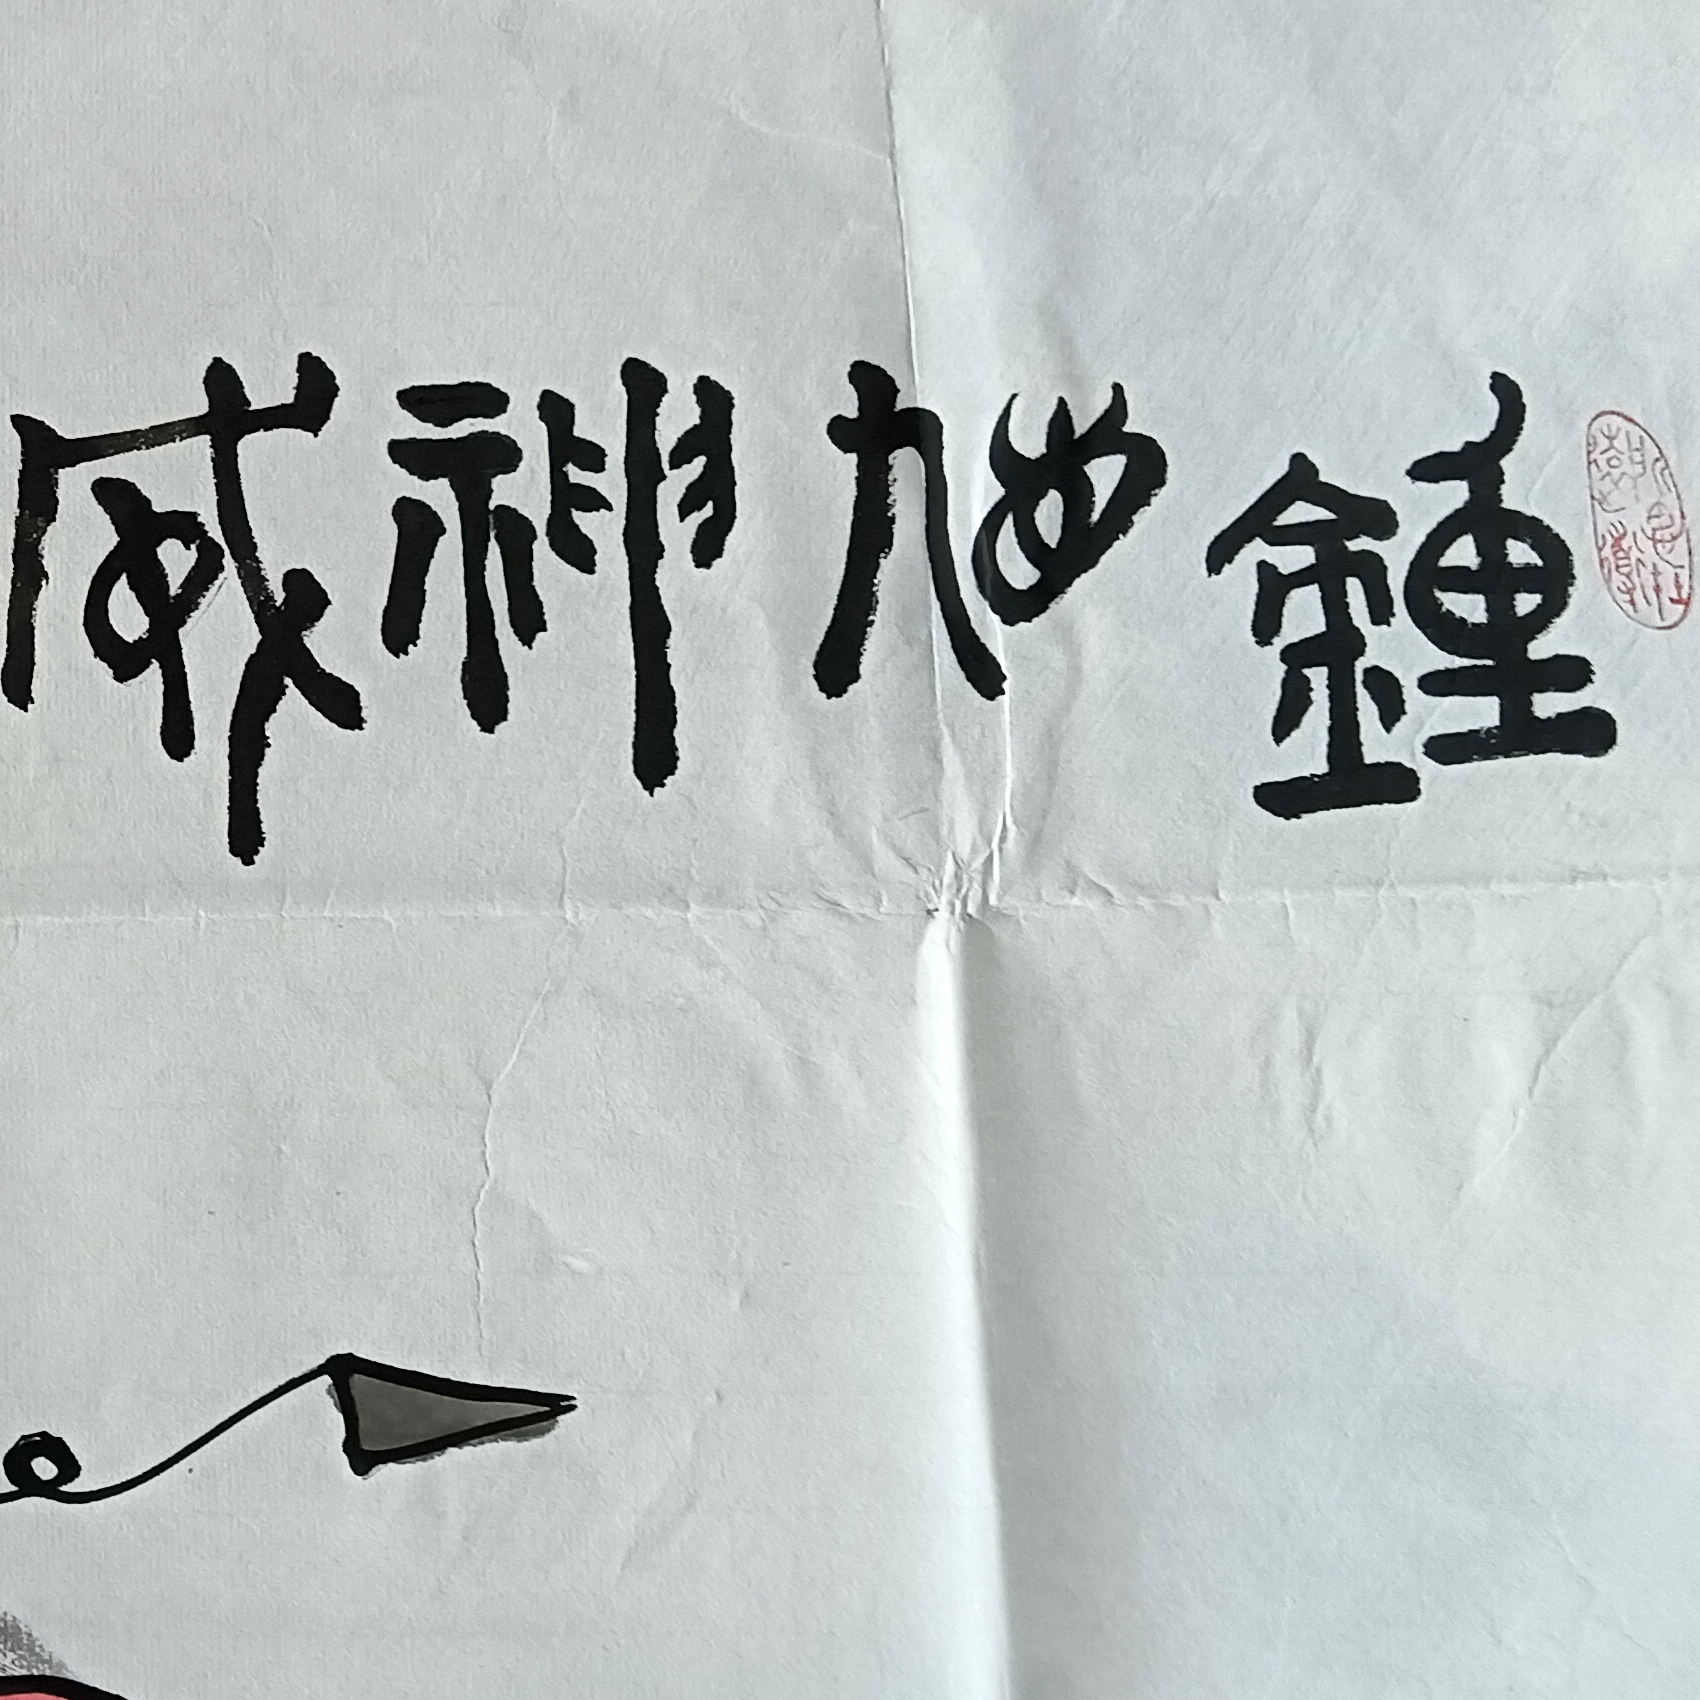 鍾馗神威